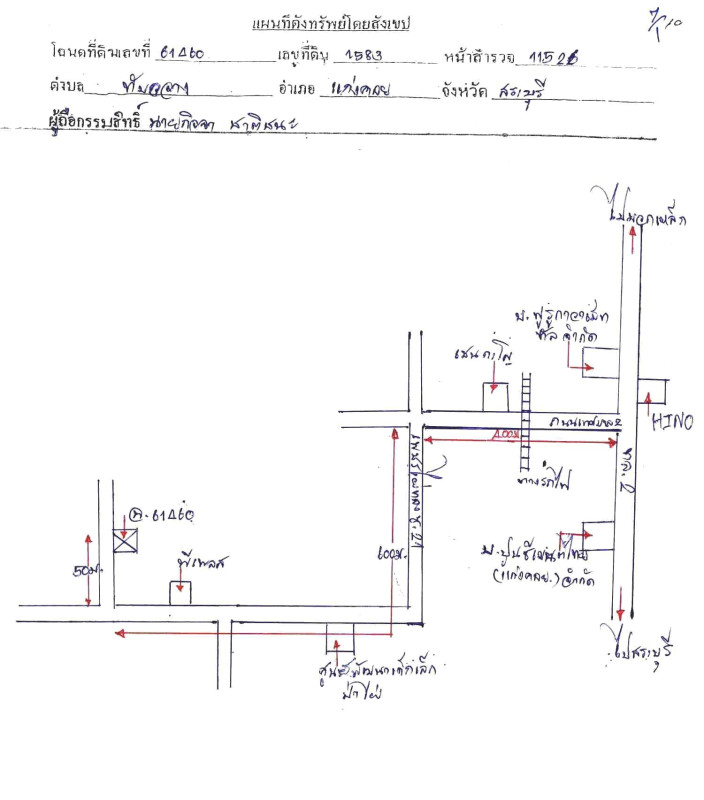 แผนที่ตั้งทรัพย์โดยสังเขป
โฉนดที่ดินเลขที่ 61460 เลขที่ดิน 1583 หน้าสำรวจ 11526
ตำบล ทับกวาง อำเภอ แก่งคอย จังหวัด สระบุรี
ผู้ถือกรรมสิทธิ์ นายกิจจา ชาติชนะ
ไปมวกเหล็ก
บ.ฟูรูกาวาเม็ท
ทัล จำกัด
HINO
ถนนเทศบาล 2
400ม
ทางรถไฟ
600ม.
ฉ.61460
50ม.
พีเพลส
บ.ปูนซีเมนต์ไทย
(แก่งคอย) จำกัด
ไปสระบุรี
ศูนย์พัฒนาเด็กเล็ก
ป่าไผ่